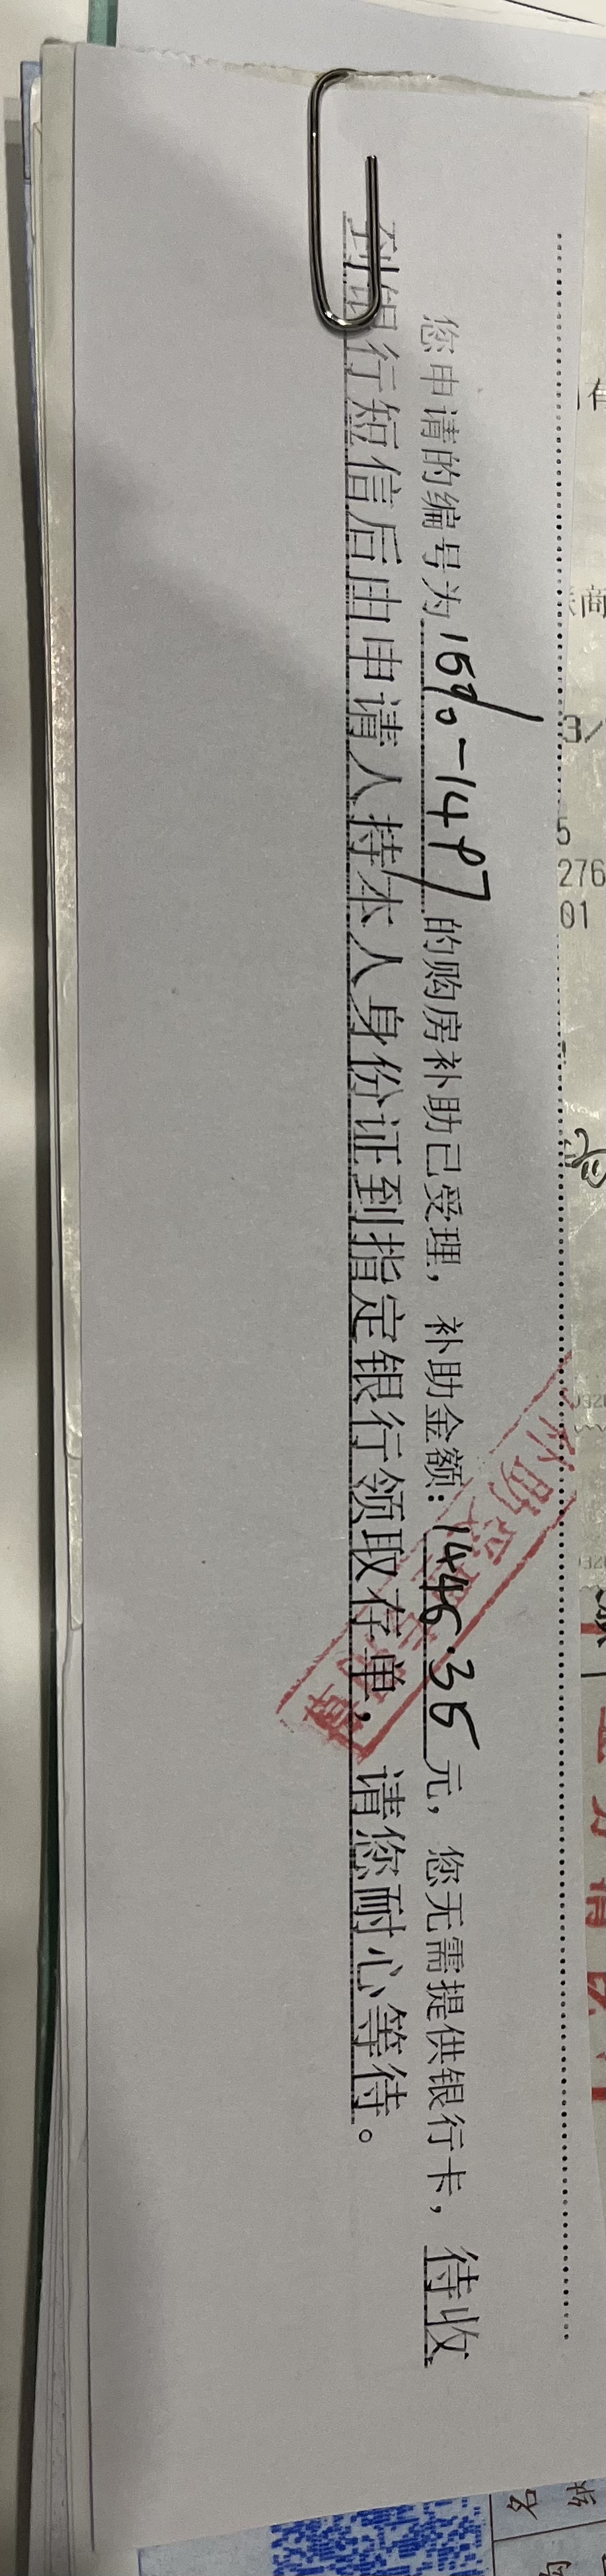 您申请的编号为15%-1497的购房补助已受理，补助金额：1446.35元，您无需提供银行卡，待收
到银行短信后由申请人持本人身份证到指定银行领取存单，请您耐心等待。
3/
5
276
01